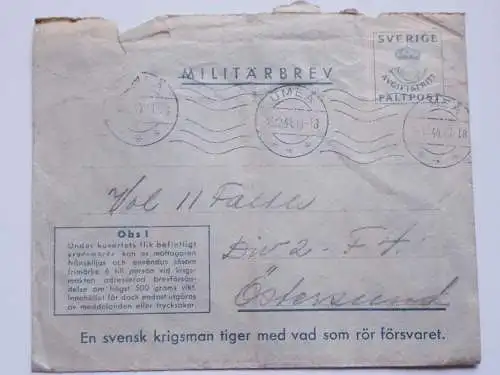 SVERIGE
AVGIFTSFRITT
FÄLTPOST
MILITÄRBREV
UMEÅ
UMEÅ
Vol 11
Div 2 - F 4.
Östersund
Obs!
Under kuvertets flik befintligt
svarsmärke kan av mottagaren
frånskiljas och användas såsom
frimärke å till person vid krigs-
makten adresserad brevförsän-
delse om högst 500 grams vikt.
Innehållet får dock endast utgöras
av meddelanden eller trycksaker.
En svensk krigsman tiger med vad som rör försvaret.